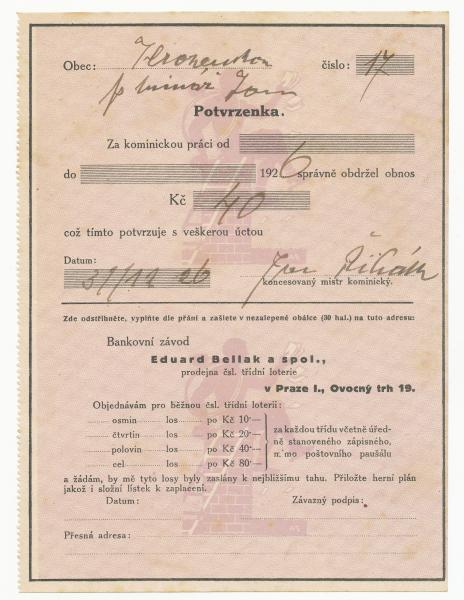 Obec: číslo: 17
Jan
Potvrzenka.
Za kominickou práci od
do 1926 správně obdržel obnos
Kč 40
což tímto potvrzuje s veškerou úctou
Datum:
31/12 26 Jan
koncesovaný mistr kominický.
Zde odstřihněte, vyplňte dle přání a zašlete v nezalepené obálce (30 hal.) na tuto adresu:
Bankovní závod
Eduard Bellak a spol.,
prodejna čsl. třídní loterie
v Praze I., Ovocný trh 19.
Objednávám pro běžnou čsl. třídní loterii:
osmin los po Kč 10·—
čtvrtin los po Kč 20·—
polovin los po Kč 40·—
cel los po Kč 80·—
za každou třídu včetně úřed-
ně stanoveného zápisného,
mimo poštovního paušálu
a žádám, by mě tyto losy byly zaslány k nejbližšímu tahu. Přiložte herní plán
jakož i složní lístek k zaplacení.
Datum: Závazný podpis:
Přesná adresa: